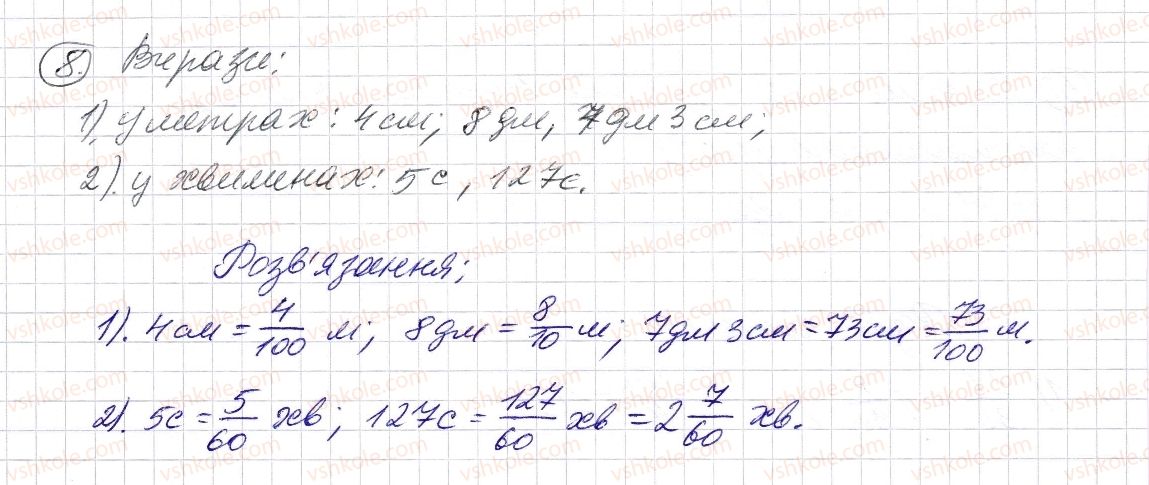 8. Вирази:
1). у метрах: 4 см; 8 дм; 7 дм 3 см;
2). у хвилинах: 5 с, 127 с.
Розв'язання:
1). 4 см = 4/100 м; 8 дм = 8/10 м; 7 дм 3 см = 73 см = 73/100 м.
2). 5 с = 5/60 хв; 127 с = 127/60 хв = 2 7/60 хв.
vshkole.com